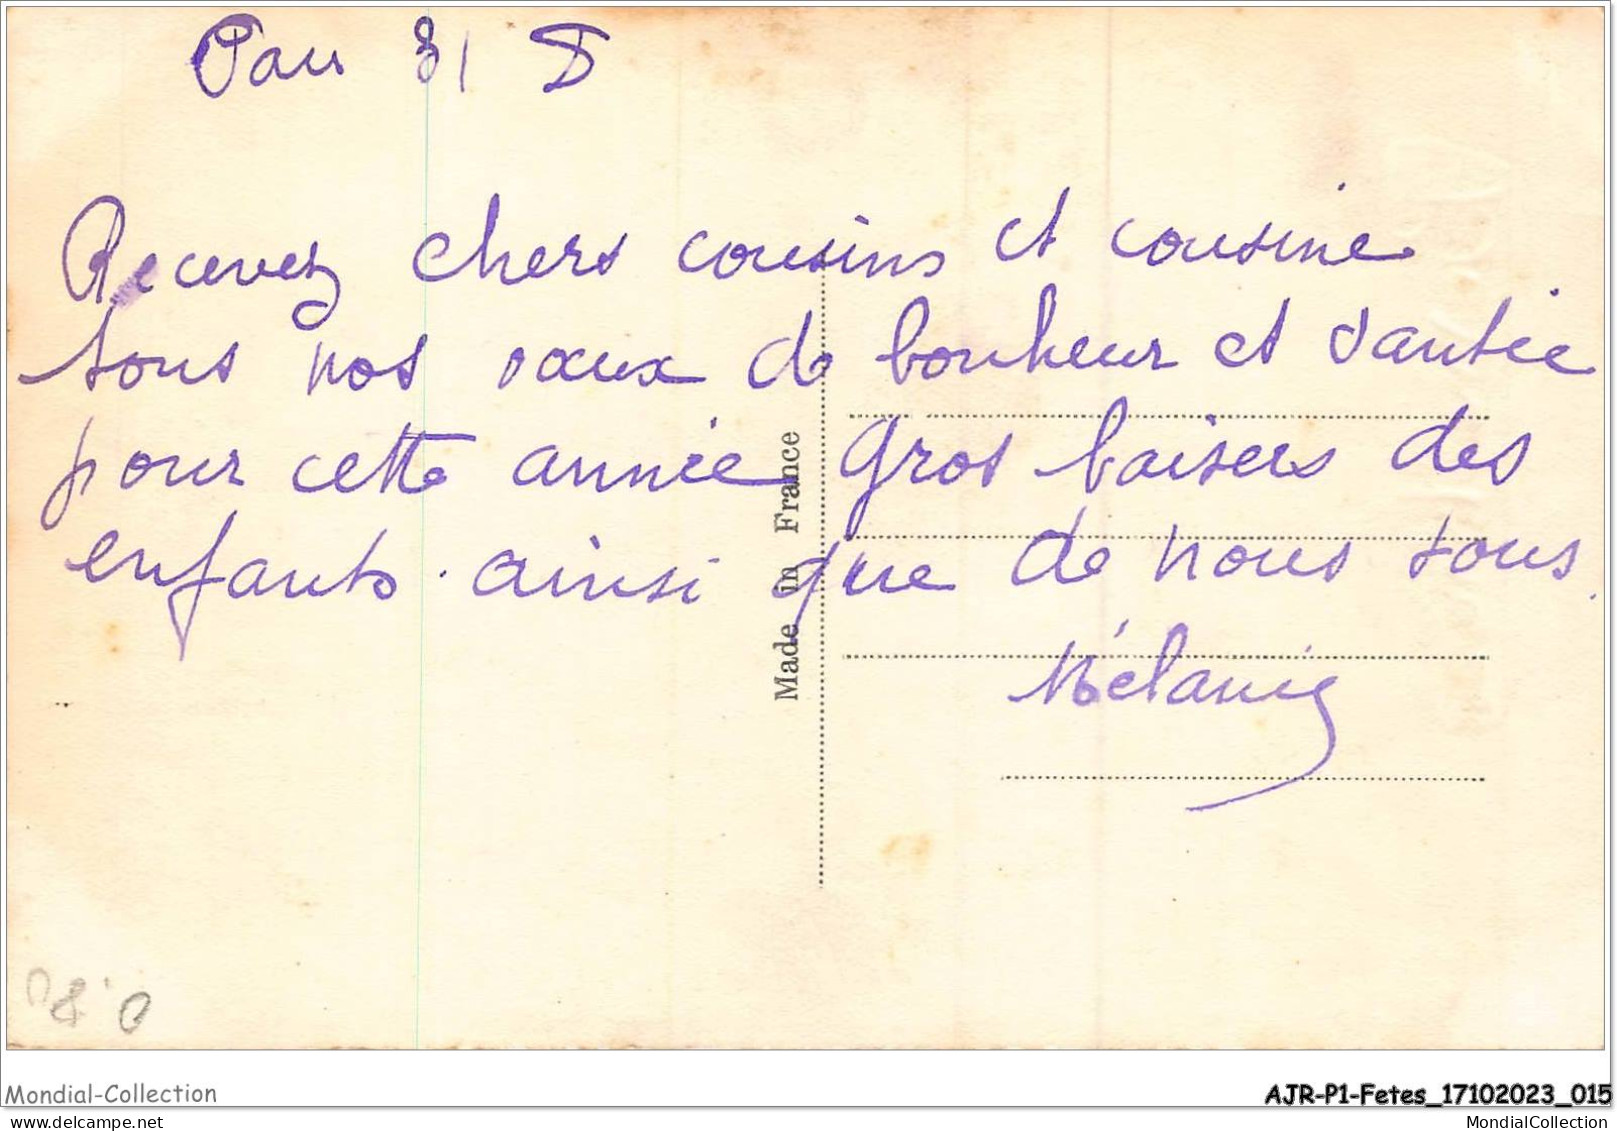 Pau 31 D
Recevez chers cousins et cousine
tous nos vœux de bonheur et santée
pour cette année gros baisers des
enfants. ainsi que de nous tous.
Mélanie
Made in France
0'80
Mondial-Collection
AJR-P1-Fetes_17102023_015
Mondial-Collection.com
MondialCollection